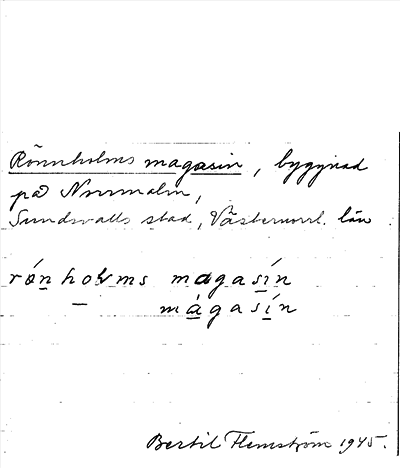 Rönnholms magasin, byggnad
på Norrmalm,
Sundsvalls stad, Västernorrl. län
rón holvms magasín
màgasín
Bertil Flemström 1945.